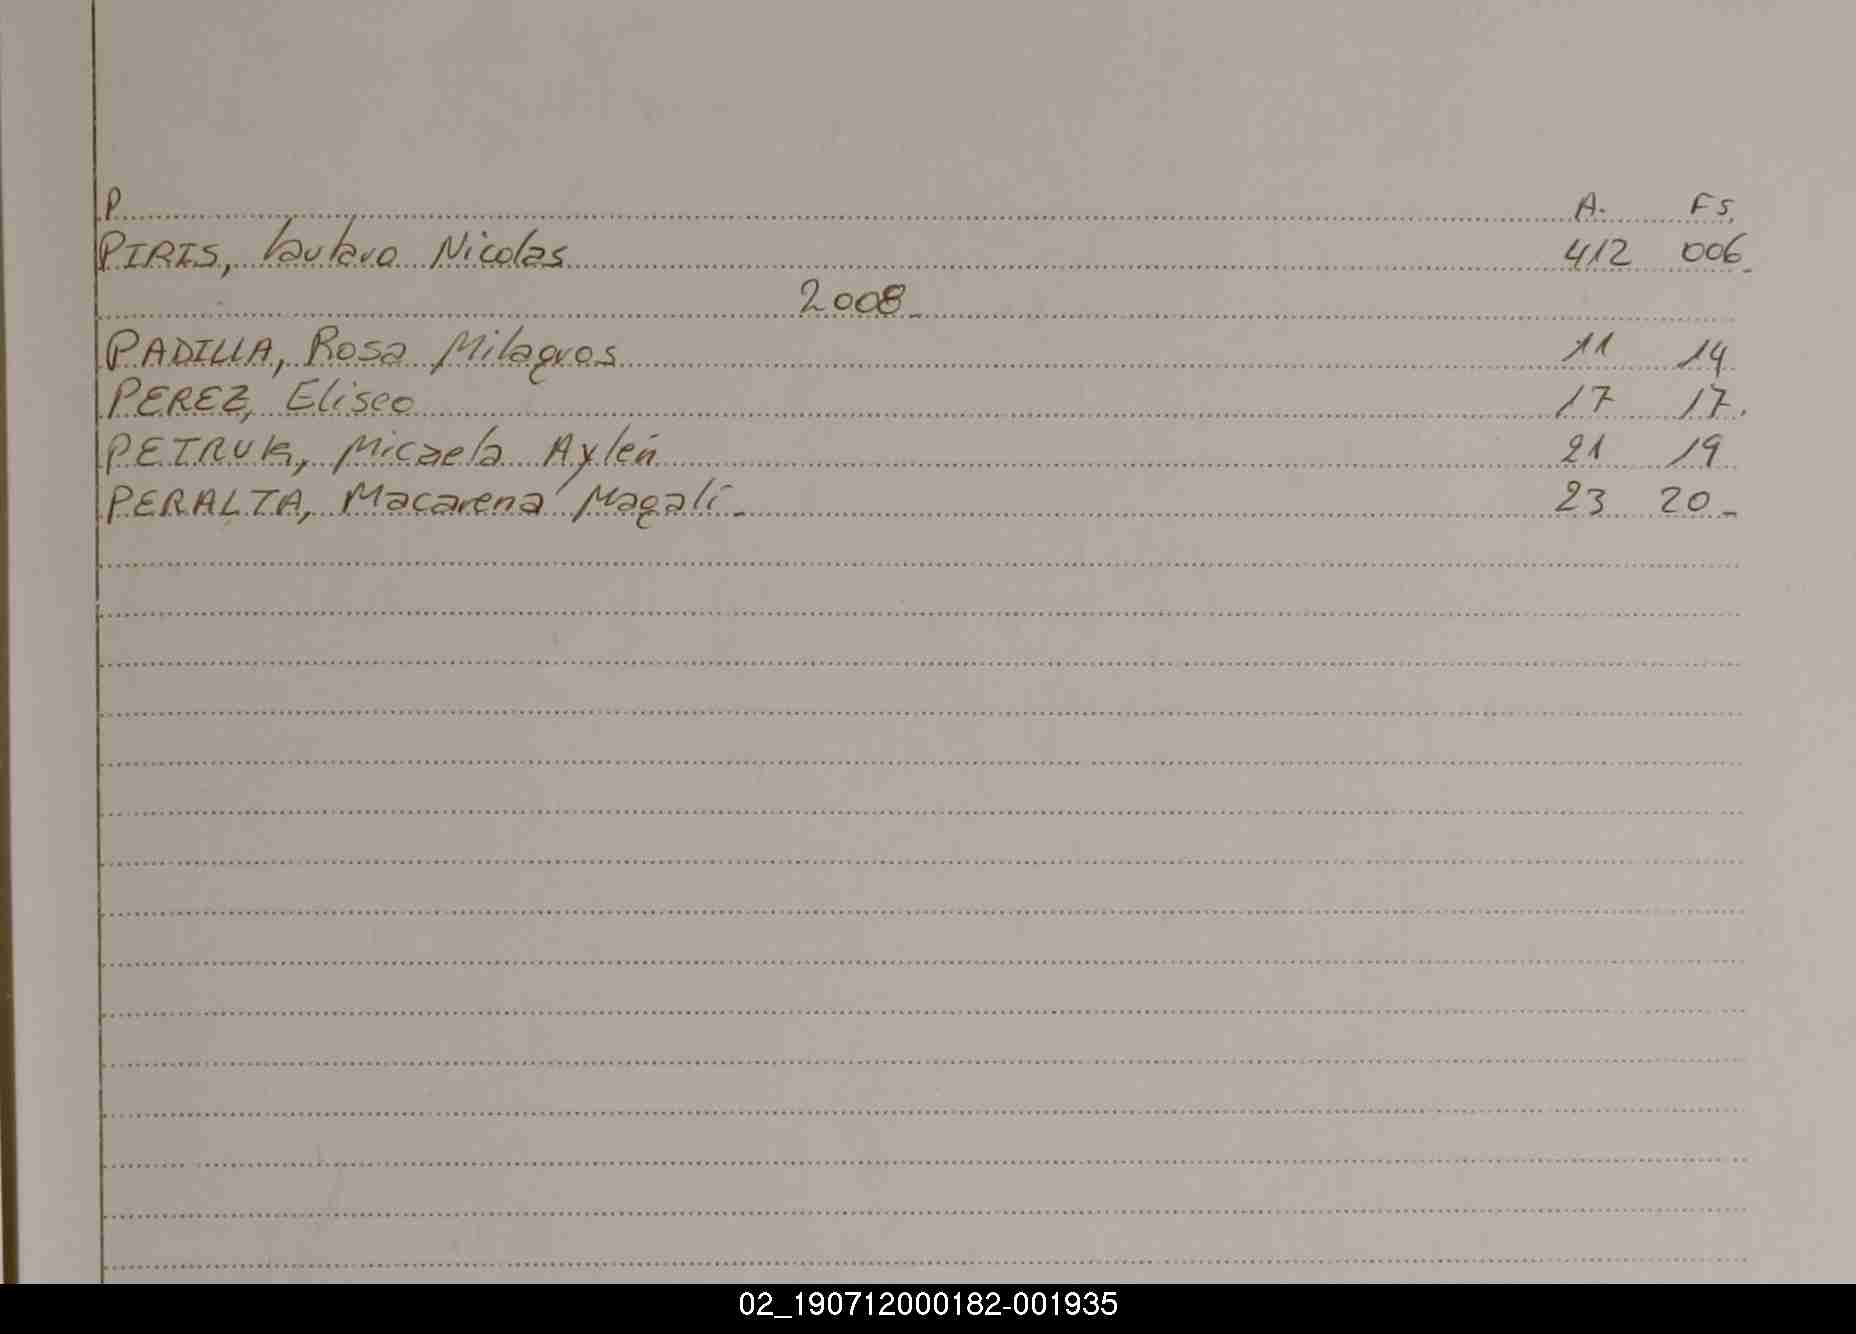 P A. Fs.
PIRIS, Lautaro Nicolas 412 006.
2008.
PADILLA, Rosa Milagros 11 14
PEREZ, Eliseo 17 17.
PETRUK, Micaela Aylén 21 19
PERALTA, Macarena Magalí. 23 20.
02_190712000182-001935